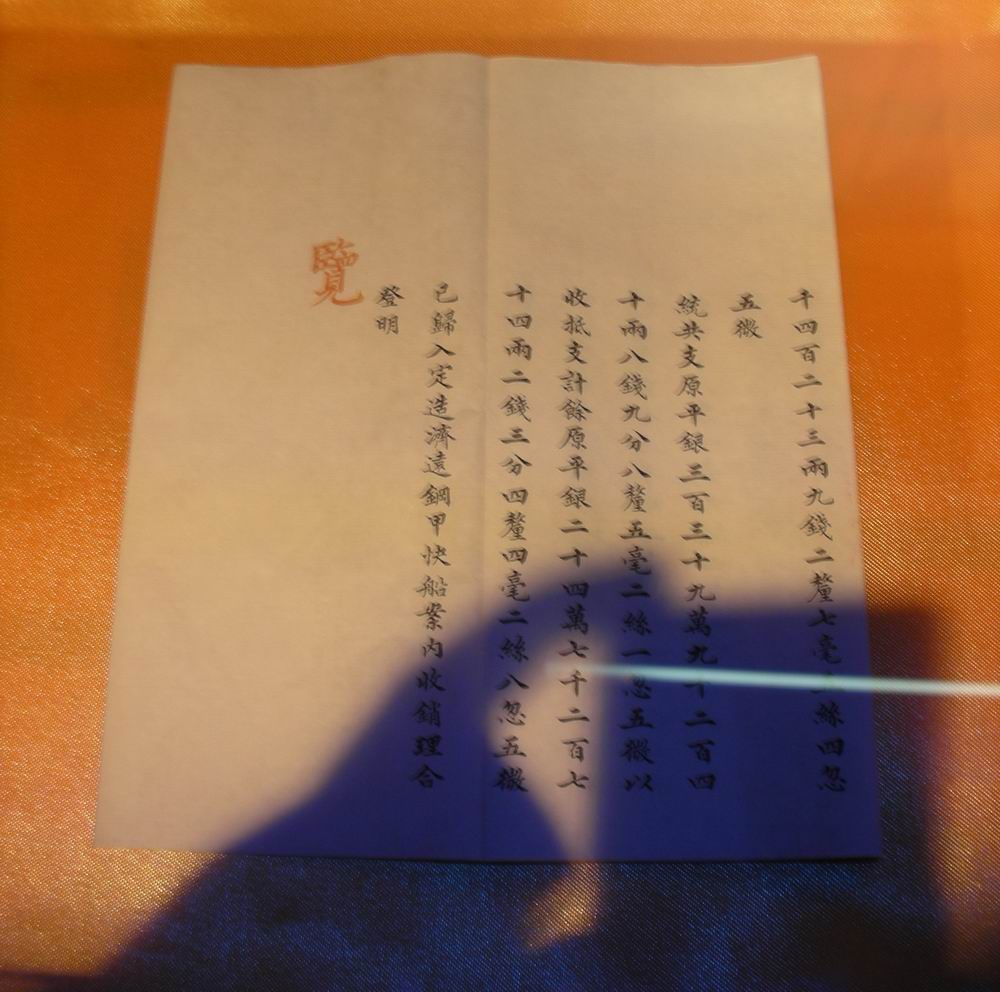 千四百二十三兩九錢二釐七毫絲四忽
五微
統共支原平銀三百三十九萬九千二百四
十兩八錢九分八釐五毫二絲一忽五微以
收抵支計餘原平銀二十四萬七千二百七
十四兩二錢三分四釐四毫二絲八忽五微
已歸入定造濟遠鋼甲快船案內收銷理合
登明
覽